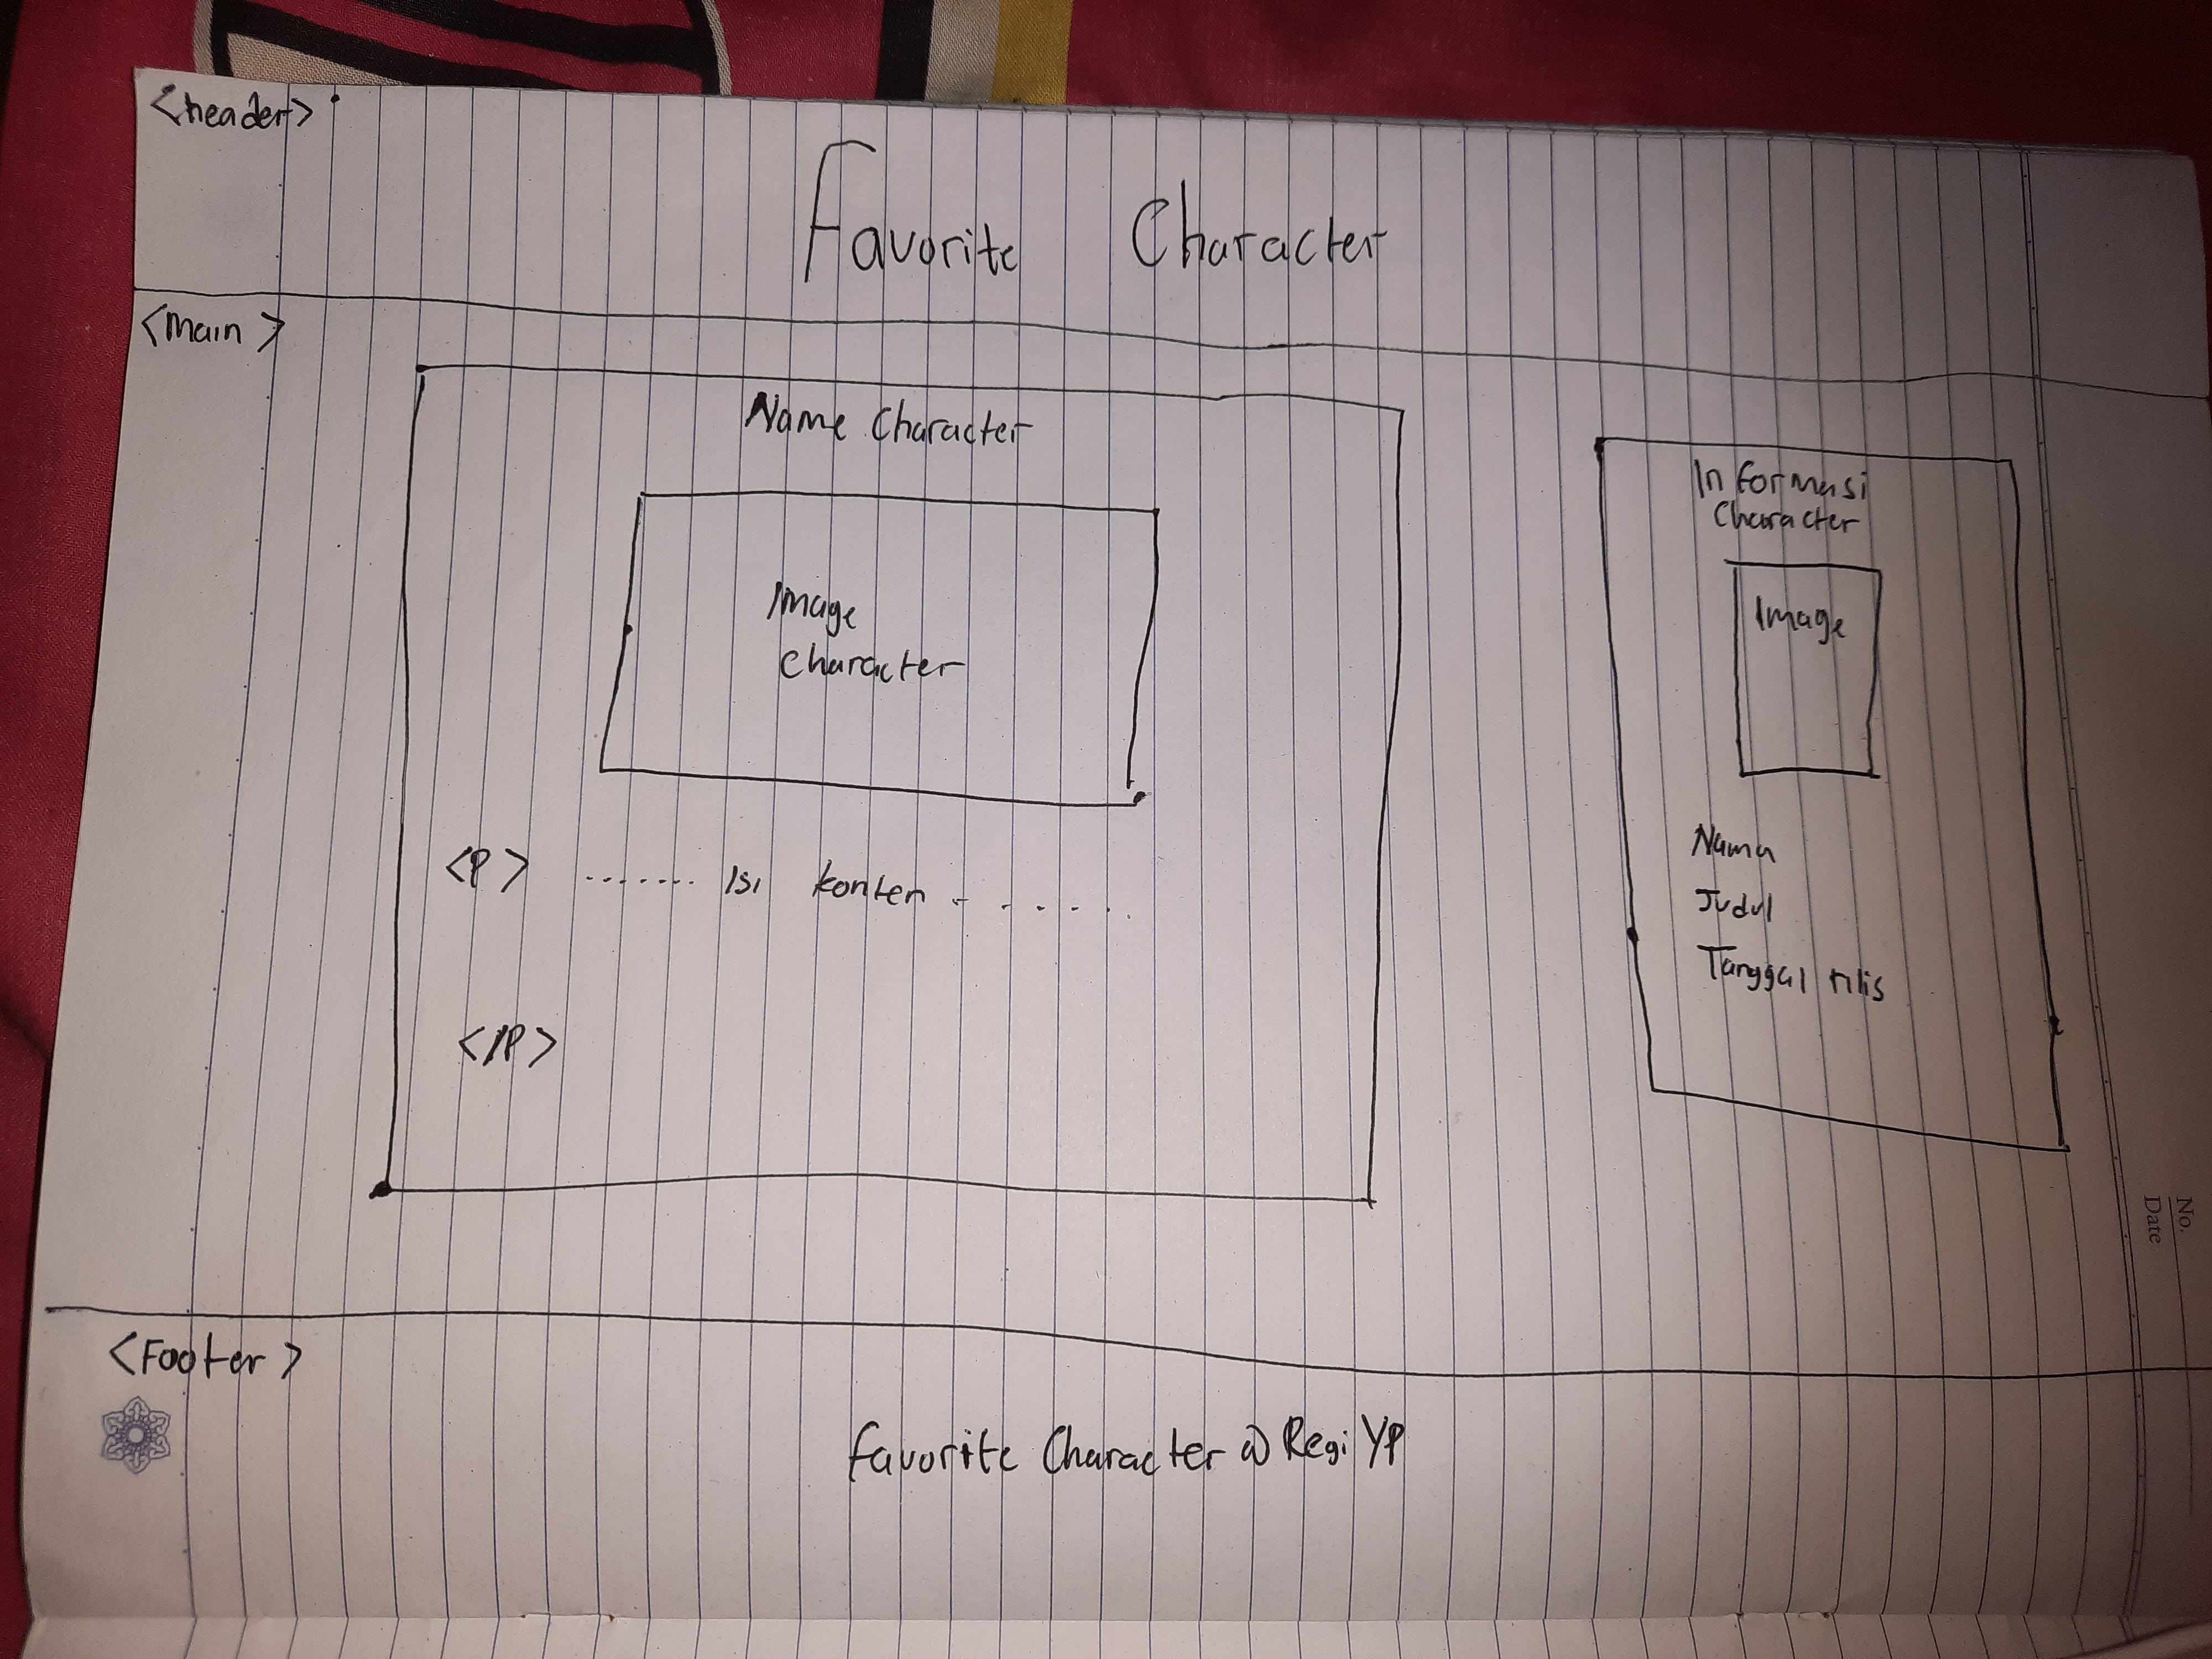 <header>
Favorite Character
<main>
Name Character
Image
Character
<p> ....... Isi konten - - - - - .
</p>
Informasi
Character
Image
Nama
Judul
Tanggal rilis
<Footer>
Favorite Character @ Regi Yp
No.
Date